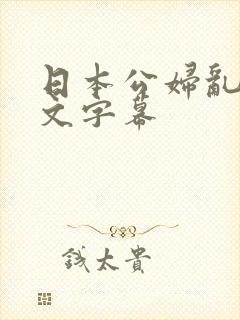 日本公婦亂
文字幕
錢太貴